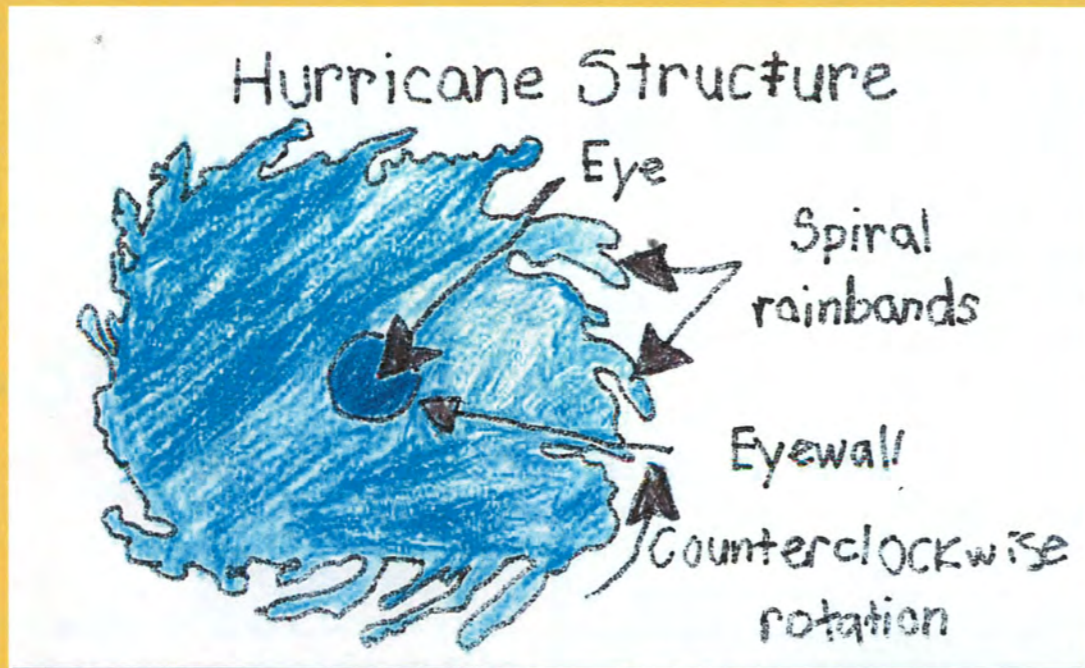 Hurricane Structure
Eye
Spiral
rainbands
Eyewall
Counterclockwise
rotation